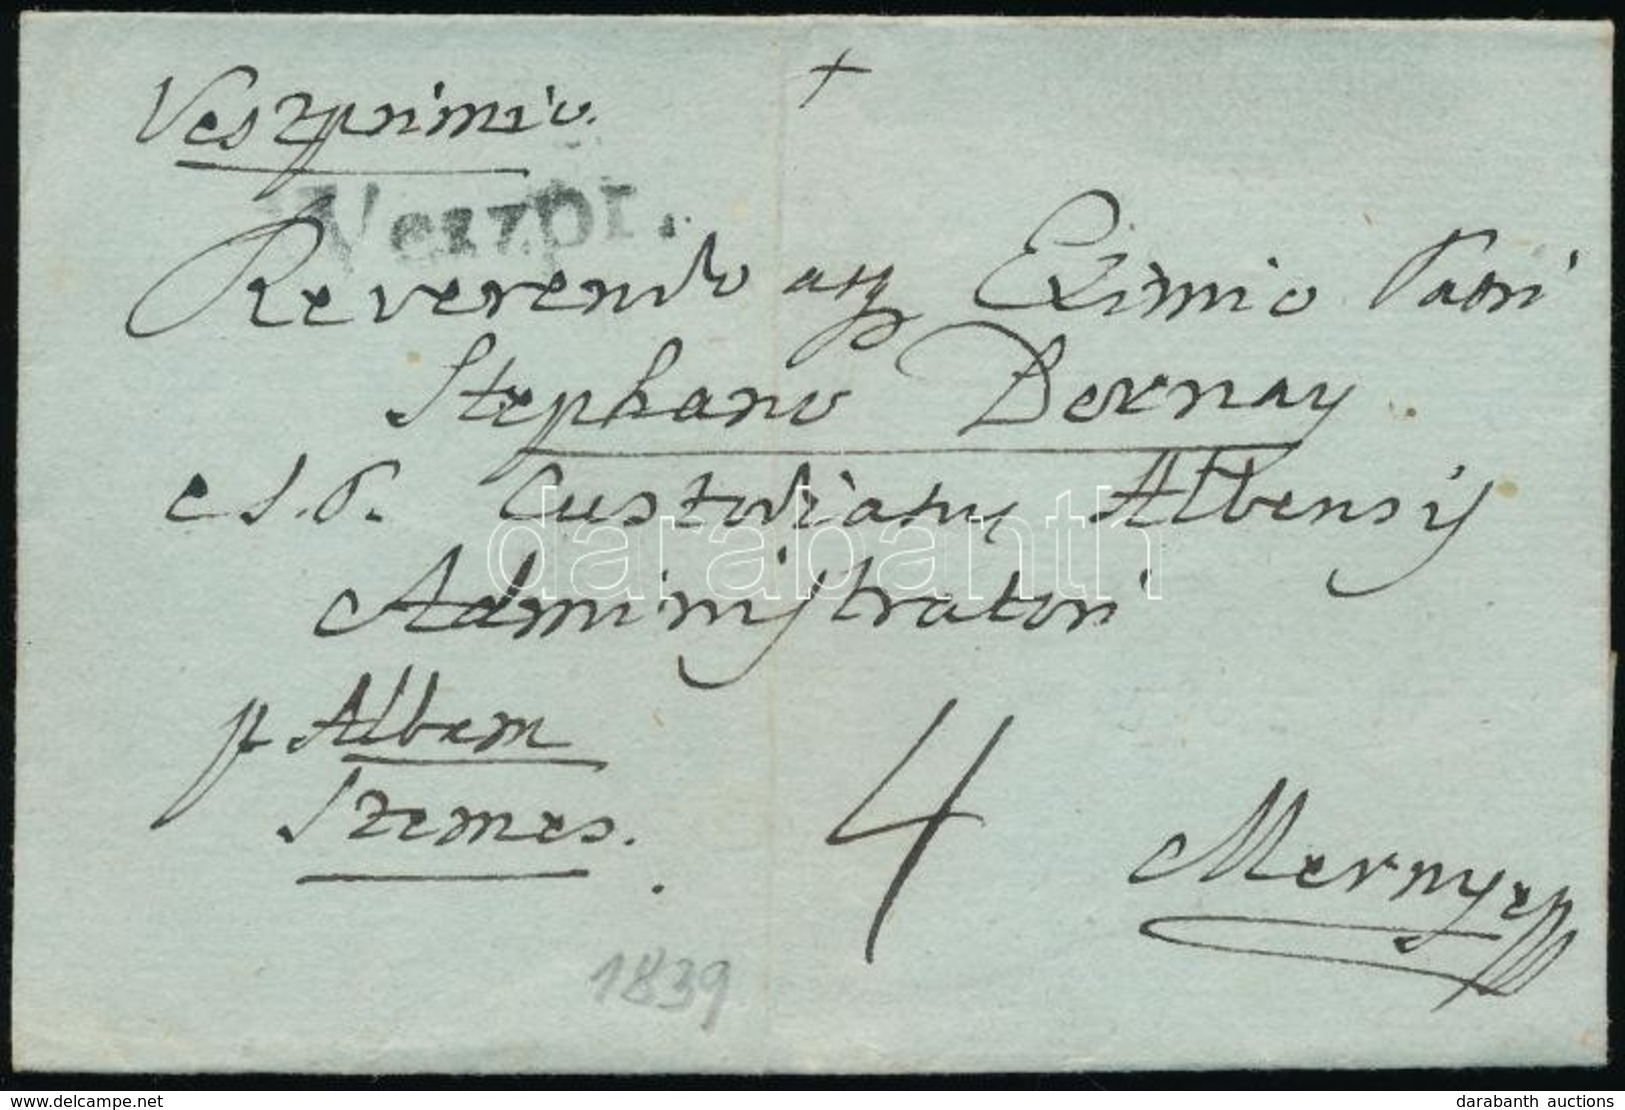 Veszprimio.
Veszpr.
Reverendo acq Eximio Patri
Stephano Dornay
e S. P. Custodiatus Albensis
Administratori
p Albam
Szemes.
4
Mernye
1839
darabanth
www.delcampe.net
darabanth auctions